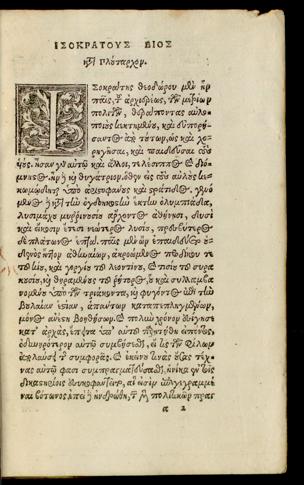 ΙΣΟΚΡΑΤΟΥΣ ΒΙΟΣ
κτ̀ Πλούταρχον.
ΙΣΟΚΡάτης θεοδώρου μὲν ἦν
παῖς, τ̃ ἀρχιερέως, τῶν μετρίων
πολιτῶν, θεράποντας αὐλο
ποιοὺς κεκτημένου, καὶ εὐπορήσ
αντος ἀπ τούτων, ὡς καὶ χο
ρηγῆσαι, καὶ παιδεῦσαι τοὺς
ὑοῦς. ἦσαν γὰρ αὐτῷ καὶ ἄλλοι, τελέσιππος καὶ διό
μνηστος. ἦν δὲ καὶ θυγάτριον. ὅθεν εἰς τοὺς αὐλοὺς κε
κωμῴδηται ὑπὸ ἀριστοφάνους καὶ στράτιδος. γενό
μενος δὲ κτ̀ τὴν ὀγδοηκοστὴν ἕκτην ὀλυμπιάδα,
λυσιμάχου μυρρινουσίου ἄρχοντος ἀθήνησι, δυσὶ
καὶ εἴκοσιν ἔτεσι νεώτερος λυσίου, πρεσβύτερος
δὲ πλάτωνος ἑπτά. παῖς μὲν ὢν ἐπαιδεύετο οὐ
δενὸς ἧττον ἀθηναίων, ἀκροώμενος προδίκου τε
τοῦ κείου, καὶ γοργίου τοῦ λεοντίνου, καὶ τισίου τοῦ συρα
κουσίου, καὶ θηραμένους τοῦ ῥήτορος, οὗ καὶ συλλαμβα
νομένου ὑπὸ τῶν τριάκοντα, καὶ φυγόντος ἐπὶ τὴν
βουλαίαν ἑστίαν, ἁπάντων καταπεπληγμένων,
μόνος ἀνέστη βοηθήσων. καὶ πολὺν χρόνον ἐσίγησε
κατ' ἀρχάς, ἔπειτα ὑπ' αὐτοῦ παρῃτήθη εἰπόντος,
ὀδυνηρότερον αὐτῷ συμβήσεσθαι, εἴ τις τῶν φίλων
ἀπολαύσει τ̃ συμφορᾶς. καὶ ἐκείνου τινὰς οὔσας τέχ
νας αὐτῷ φασι συμπραγματεύσασθαι, ἡνίκα ἐν τοῖς
δικαστηρίοις ἐσυκοφαντεῖτο, αἵ εἰσιν ἐπιγεγραμμέ
ναι βότωνος. ἐπεὶ δὲ ἠνδρώθη, τ̃ μὲν πολιτικῶν πραγ
a 2